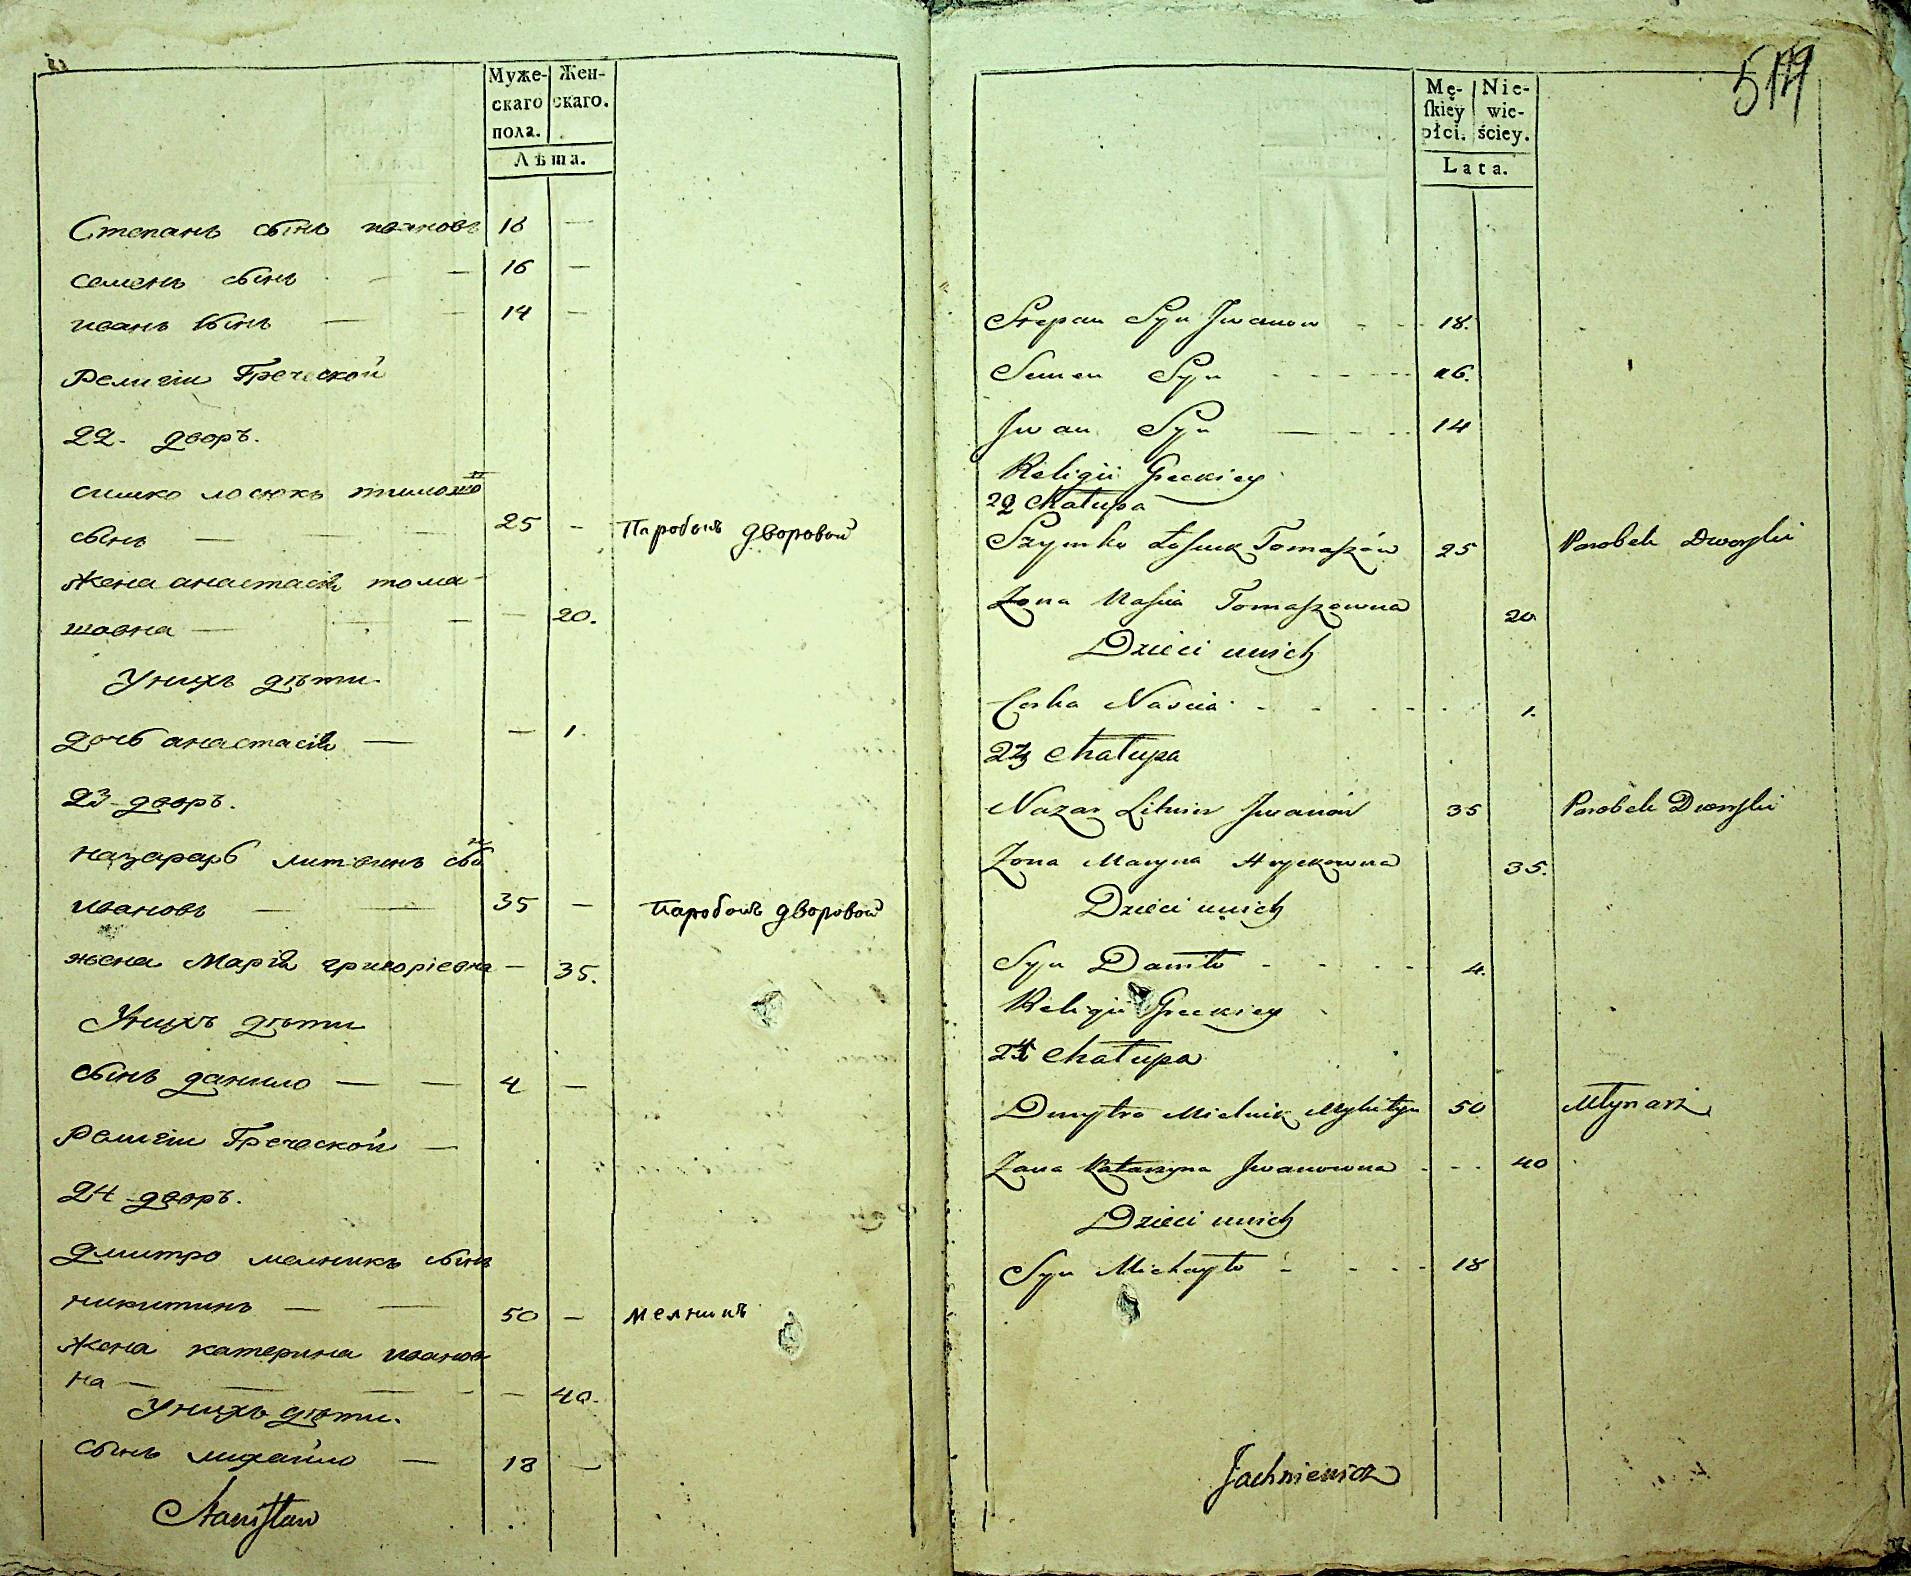 Муже-
скаго
пола.
Жен-
скаго.
Лѣта.
Степанъ сынъ ивановъ 18 —
семенъ сынъ — 16 —
иванъ сынъ — — 14 —
Религiи Греческой
22. дворъ.
симко лосюкъ
сынъ — — — 25 - Паробокъ дворовой
Жена анастасiя тома-
шовна — — — — 20.
Унихъ дѣти.
дочь анастасiя — — 1.
23 дворъ.
литвинъ
ивановъ — — 35 — Паробокъ дворовой
жена Марiя григорiевна — 35.
Унихъ дѣти
сынъ данило — — 4 —
Религiи Греческой —
24 дворъ.
Дмитро мелникъ сынъ
никитинъ — — 50 — мелникъ
Жена катерина иванов
на — — — - — 40.
Унихъ дѣти.
сынъ михайло — 18 —
Stanisław
Mę-
skiey
płci.
Nie-
wie-
ściey.
Lata.
Stepan Syn Jwanow - - 18.
Semen Syn - - - - 16.
Jwan Syn — - - 14
Religii Greckiey
22 Chałupa
Szymko Łosiuk Tomaszów 25 Parobek Dworski
Żona Nascia Tomaszowna 20.
Dzieci unich
Corka Nascia - - - - 1.
23 Chałupa
Nazar Litwin Jwanów 35 Parobek Dworski
Żona Maryna Hryckowna 35.
Dzieci unich
Syn Daniło - - - - 4.
Religii Greckiey
24 Chałupa
Dmytro Mielnik Mykityn 50 Młynarz
Żona Katarzyna Jwanowna - - - 40
Dzieci unich
Syn Michayło - - - - 18
Jachniewicz